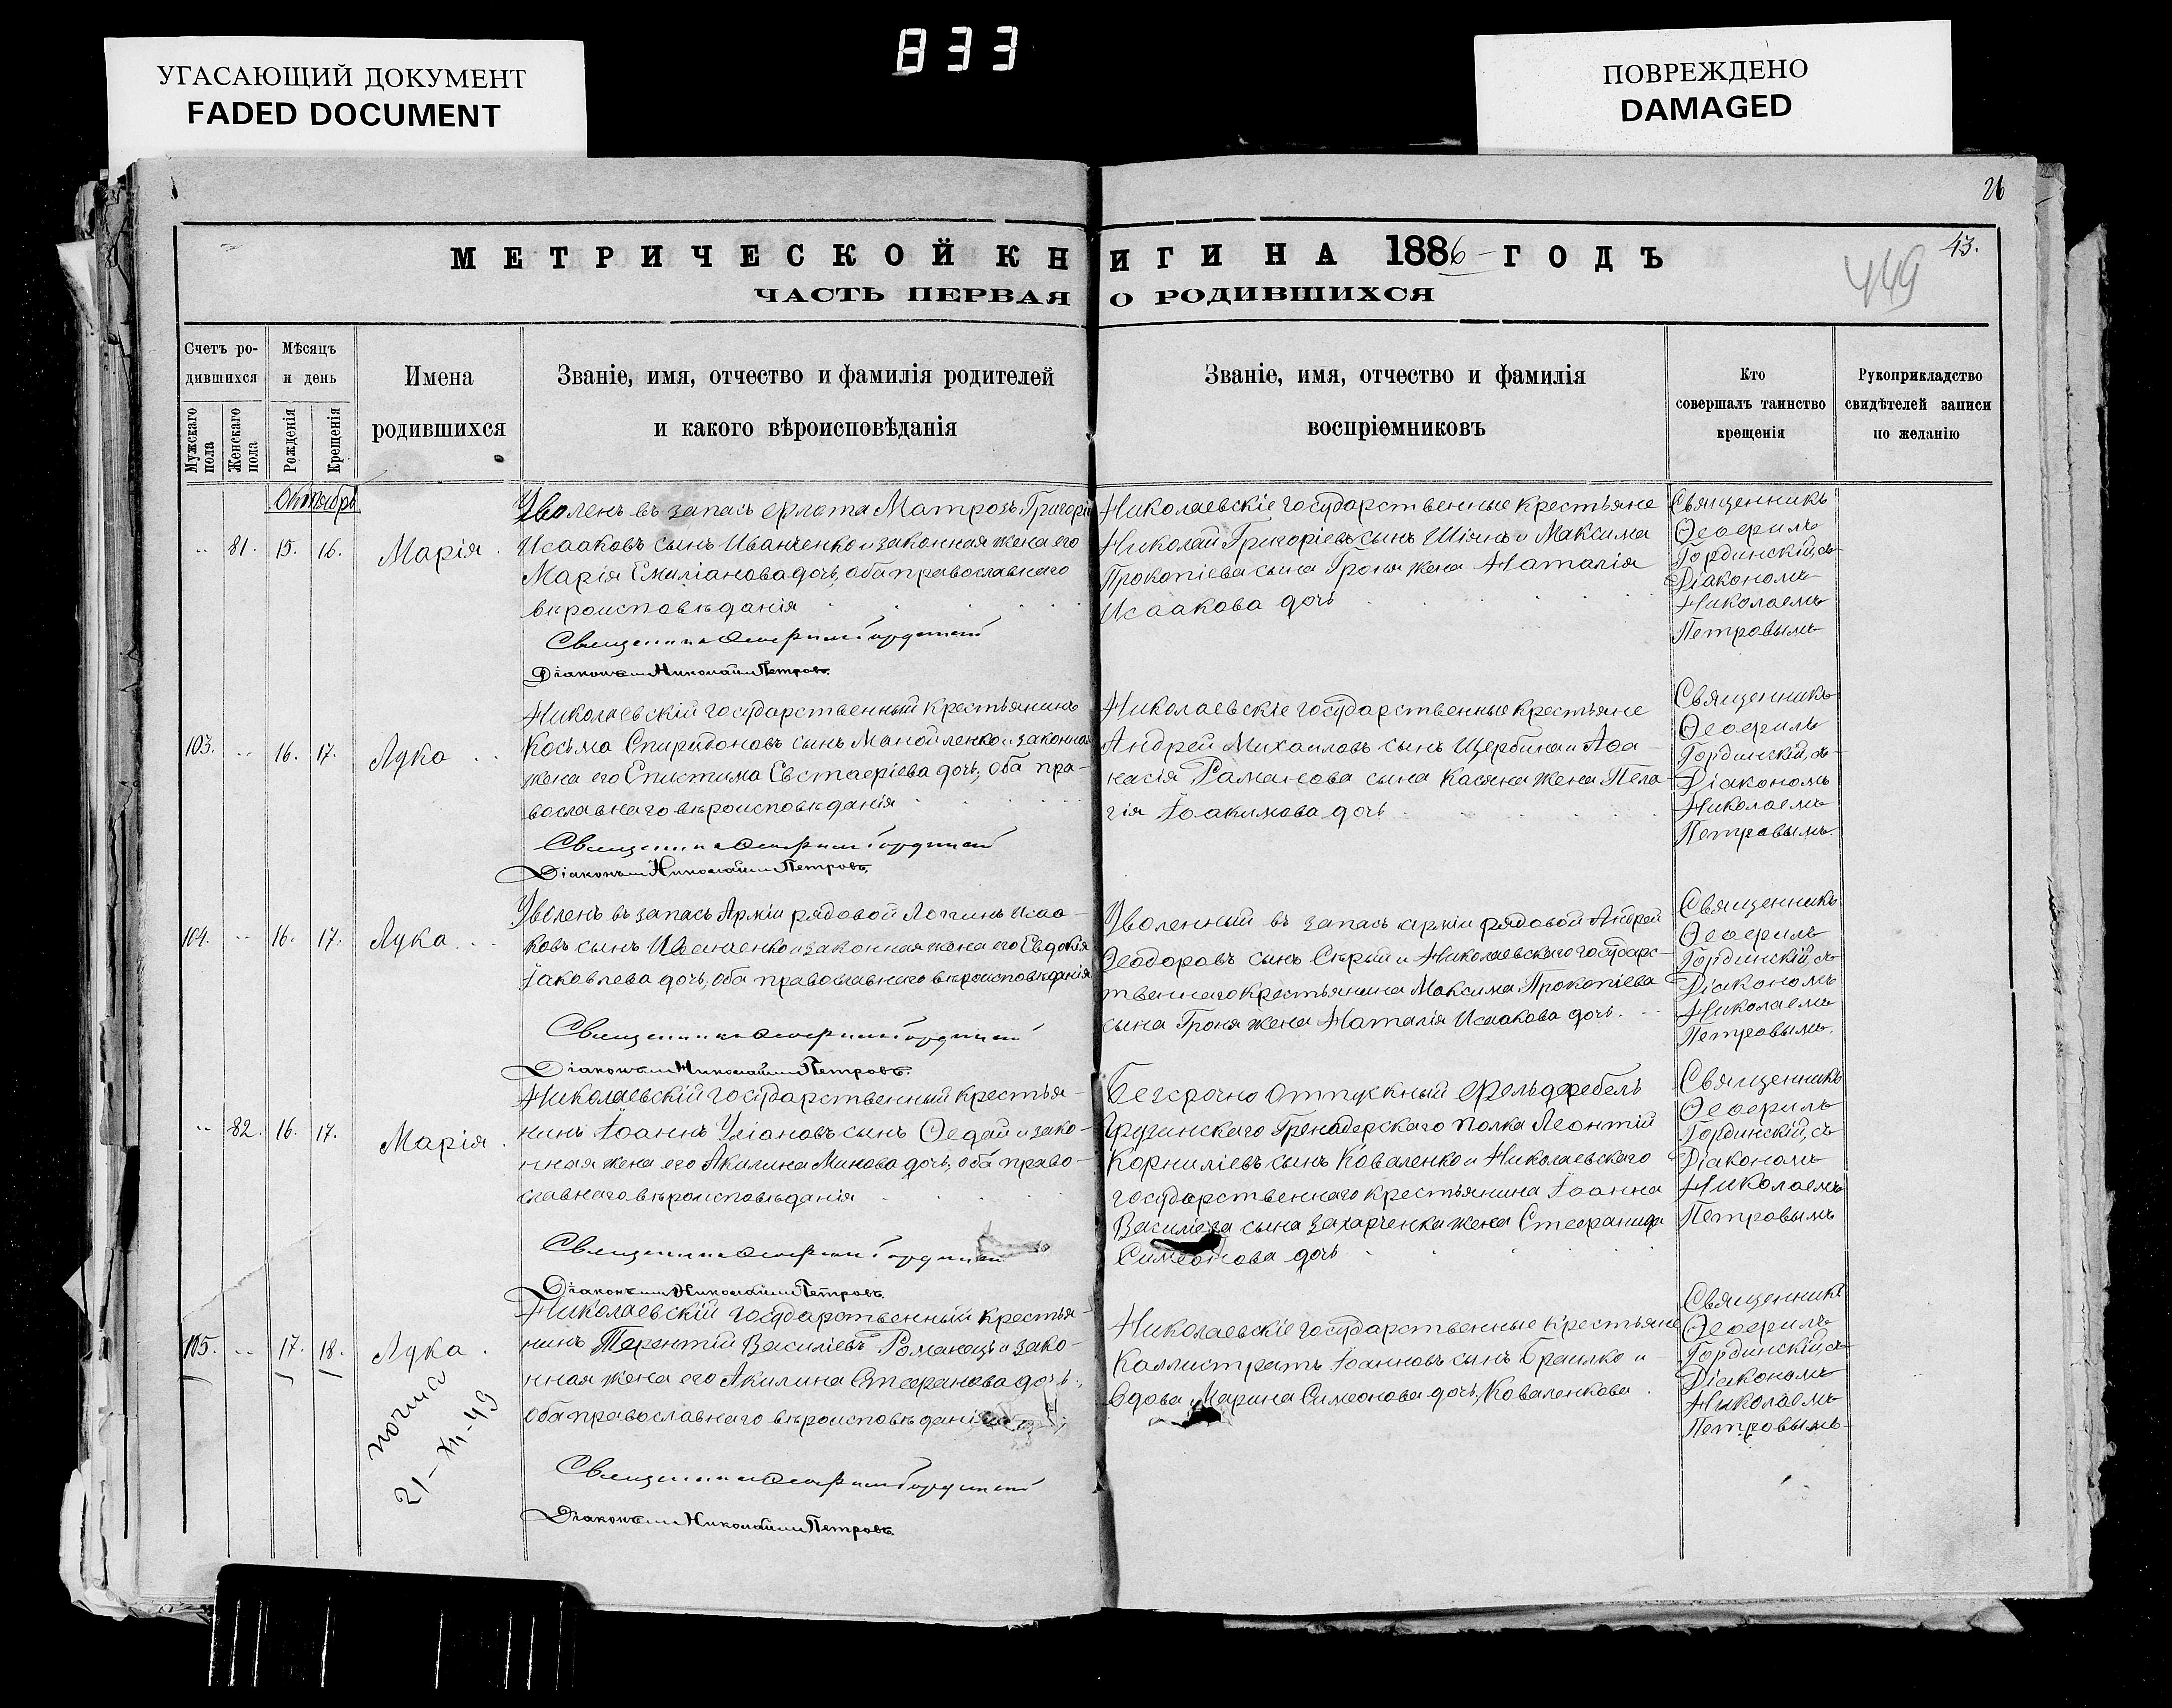 833
УГАСАЮЩИЙ ДОКУМЕНТ
FADED DOCUMENT
ПОВРЕЖДЕНО
DAMAGED
26
МЕТРИЧЕСКОЙ КНИГИ НА 1886 ГОДЪ
43.
449
ЧАСТЬ ПЕРВАЯ О РОДИВШИХСЯ
Счетъ ро-
дившихся
Мужскаго пола
Женскаго пола
Мѣсяцъ
и день
Рожденія
Крещенія
Имена
родившихся
Званіе, имя, отчество и фамилія родителей
и какого вѣроисповѣданія
Званіе, имя, отчество и фамилія
воспріемниковъ
Кто
совершалъ таинство
крещенія
Рукоприкладство
свидѣтелей записи
по желанію
Октябрь
81. 15. 16.
Марія
Уволенъ въ запасъ флота Матрозъ Григорій
Исааковъ сынъ Иванченко и законная жена его
Марія Емиліанова дочь, оба православнаго
вѣроисповѣданія
Священникъ Ѳеофилъ Гординскій
Діаконъ Николай Петровъ
Николаевскіе государственные крестьяне
Николай Григоріевъ сынъ Шіянъ и Максима
Прокопіева сына Гроня жена Наталія
Исаакова дочь
Священникъ
Ѳеофилъ
Гординскій, съ
Діакономъ
Николаемъ
Петровымъ
103. 16. 17.
Лука
Николаевскій государственный крестьянинъ
Косьма Спиридоновъ сынъ Манойленко и законная
жена его Епистима Евстафіева дочь, оба пра-
вославнаго вѣроисповѣданія
Священникъ Ѳеофилъ Гординскій
Діаконъ Николай Петровъ
Николаевскіе государственные крестьяне
Андрей Михаиловъ сынъ Щербина и Аѳа-
насія Романова сына Касяна жена Пела-
гія Іоакимова дочь
Священникъ
Ѳеофилъ
Гординскій, съ
Діакономъ
Николаемъ
Петровымъ.
104. 16. 17.
Лука
въ запасъ Арміи рядовой Логгинъ Исаа-
ковъ сынъ Иванченко и законная жена его Евдокія
Іаковлева дочь, оба православнаго вѣроисповѣданія
Священникъ Ѳеофилъ Гординскій
Діаконъ Николай Петровъ.
Уволенный въ запасъ арміи рядовой Андрей
Ѳеодоровъ сынъ Сѣрый и Николаевскаго государс-
твеннаго крестьянина Максима Прокопіева
сына Гроня жена Наталія Исаакова дочь.
Священникъ
Ѳеофилъ
Гординскій, съ
Діакономъ
Николаемъ
Петровымъ.
82. 16. 17.
Марія
Николаевскій государственный крестья-
нинъ Іоаннъ Уліановъ сынъ Ѳедай и зако-
нная жена его Акилина Минова дочь, оба право-
славнаго вѣроисповѣданія
Священникъ Ѳеофилъ Гординскій
Діаконъ Николай Петровъ
Безсрочно отпускный Фельдфебель
Грузинскаго Гренадерскаго полка Леонтій
Корниліевъ сынъ Коваленко и Николаевскаго
государственнаго крестьянина Іоанна
Василіева сына Захарченка жена Стефанида
Симеонова дочь
Священникъ
Ѳеофилъ
Гординскій, съ
Діакономъ
Николаемъ
Петровымъ
105. 17. 18.
Лука
21-XII-49
Николаевскій государственный крестья-
нинъ Терентій Василіевъ Романецъ и зако-
нная жена его Акилина Стефанова дочь,
оба православнаго вѣроисповѣданія
Священникъ Ѳеофилъ Гординскій
Діаконъ Николай Петровъ
Николаевскіе государственные крестьяне
Каллистратъ Іоанновъ сынъ Браилко и
вдова Марина Симеонова дочь, Коваленкова
Священникъ
Ѳеофилъ
Гординскій съ
Діакономъ
Николаемъ
Петровымъ